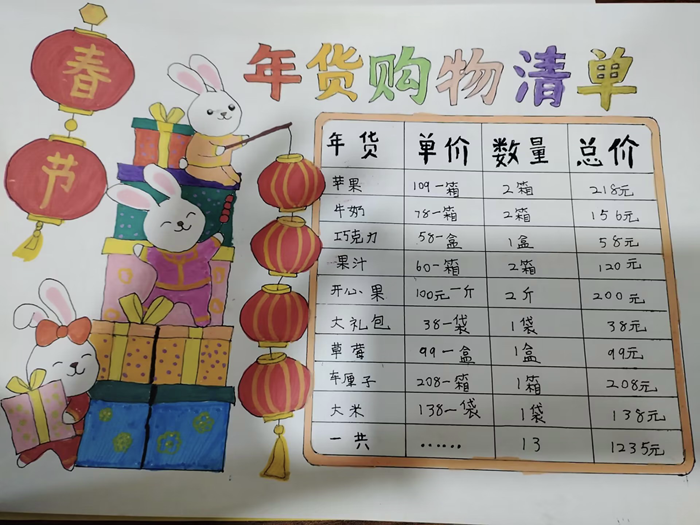 春节
年货购物清单
年货 单价 数量 总价
苹果 109一箱 2箱 218元
牛奶 78一箱 2箱 156元
巧克力 58一盒 1盒 58元
果汁 60一箱 2箱 120元
开心果 100元一斤 2斤 200元
大礼包 38一袋 1袋 38元
草莓 99一盒 1盒 99元
车厘子 208一箱 1箱 208元
大米 138一袋 1袋 138元
一共 …… 13 1235元